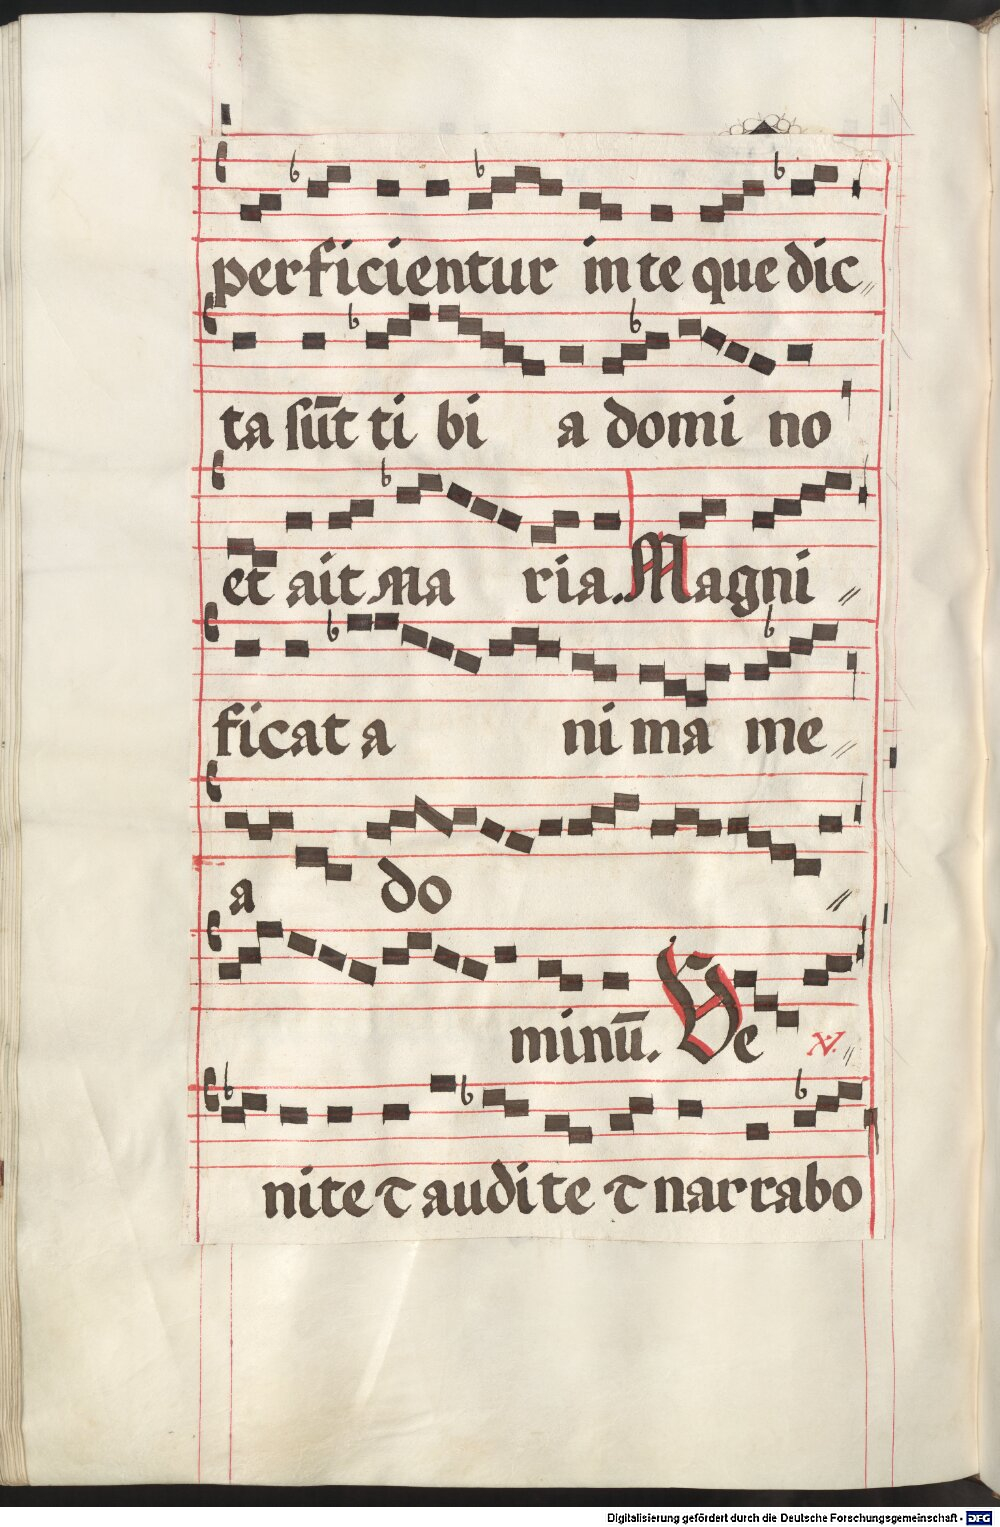 perficientur in te que dic〃
ta sūt ti bi a domi no
et ait Ma ria. Magni〃
ficat a ni ma me〃
a do〃
minū. Ve ℣.〃
nite ⁊ audite ⁊ narrabo
Digitalisierung gefördert durch die Deutsche Forschungsgemeinschaft - DFG